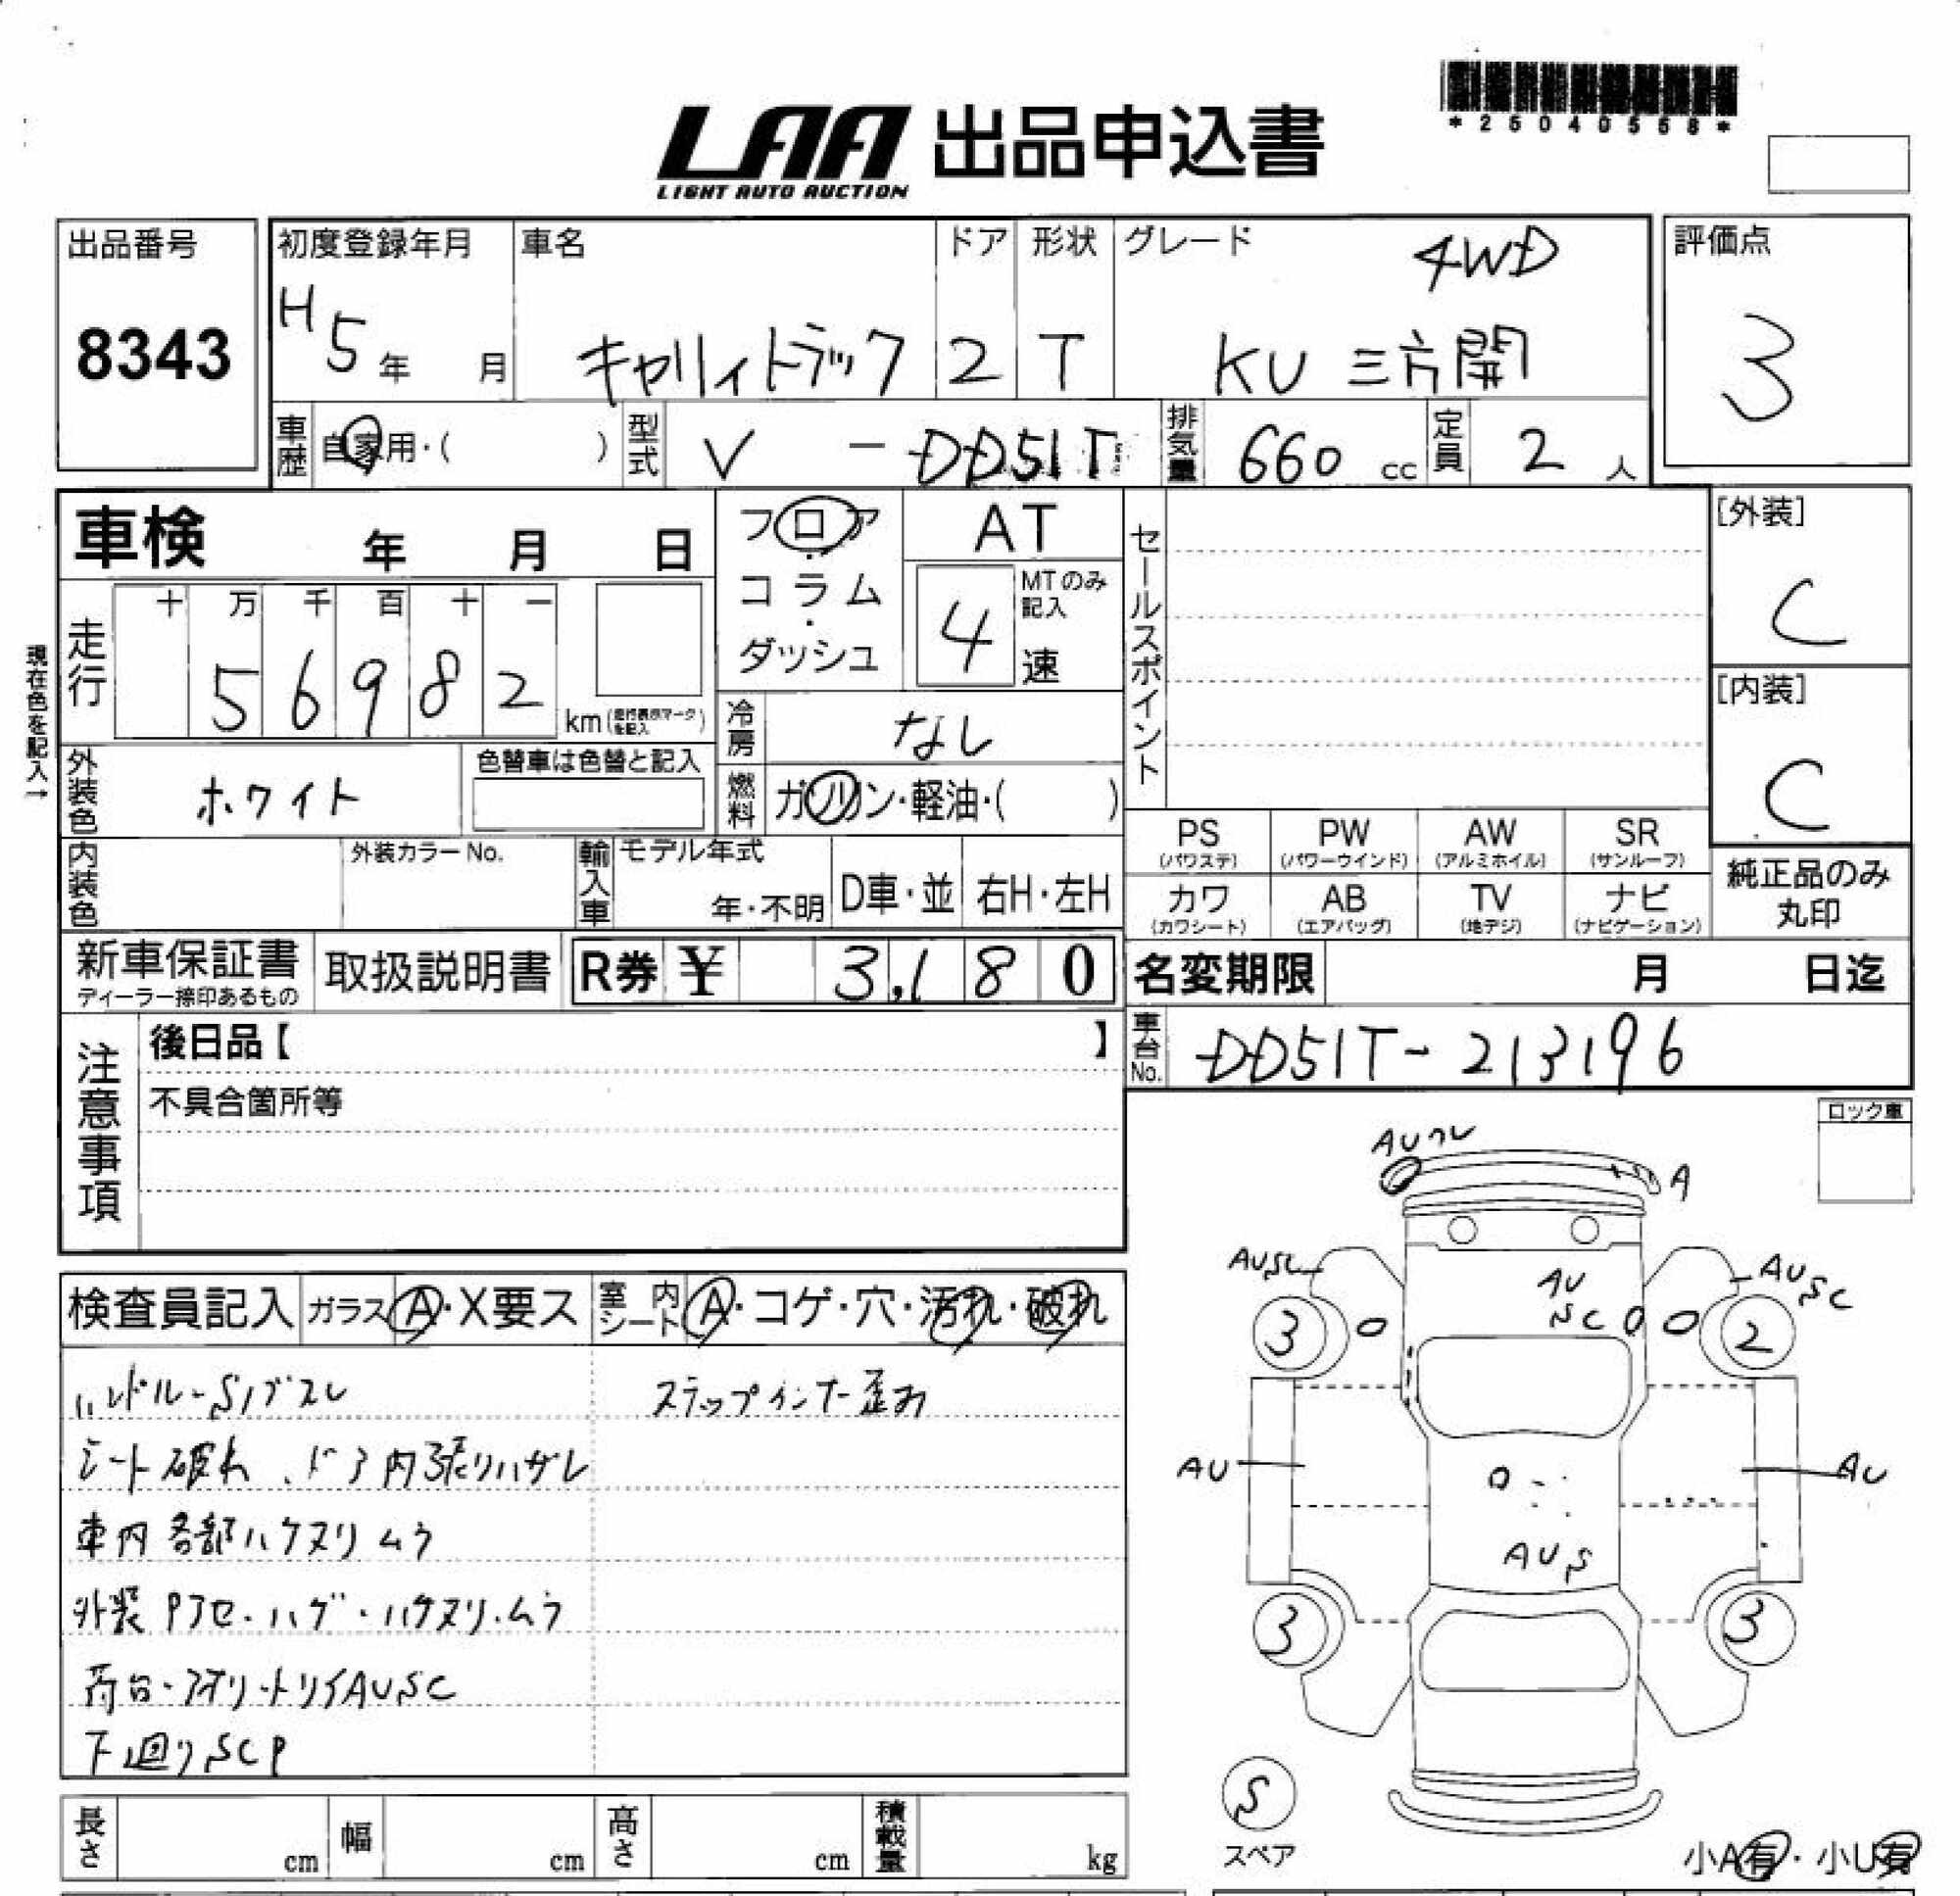 *25040558*
LAA 出品申込書
LIGHT AUTO AUCTION
出品番号
8343
初度登録年月
H5年 月
車名
キャリイトラック
ドア
2
形状
T
グレード
4WD
KU 三方開
評価点
3
車歴 自家用・( )
型式 V - DD51T
排気量 660 cc
定員 2 人
車検 年 月 日
フロア・コラム・ダッシュ
AT
MTのみ記入
4 速
セールスポイント
[外装]
C
[内装]
C
現在色を記入→
走行
十 万 千 百 十 一
5 6 9 8 2
km(走行表示マークを記入)
冷房 なし
外装色 ホワイト
色替車は色替と記入
燃料 ガソリン・軽油・( )
内装色
外装カラーNo.
輸入車
モデル年式
年・不明
D車・並
右H・左H
PS (パワステ)
PW (パワーウインド)
AW (アルミホイル)
SR (サンルーフ)
カワ (カワシート)
AB (エアバッグ)
TV (地デジ)
ナビ (ナビゲーション)
純正品のみ
丸印
新車保証書
ディーラー捺印あるもの
取扱説明書
R券 ¥ 3,180
名変期限 月 日迄
車台No. DD51T-213196
注意事項
後日品【 】
不具合箇所等
ロック車
検査員記入
ガラス A・X要ス
室内シート A・コゲ・穴・汚れ・破れ
ハンドル・Sノブスレ
ステップインナー歪み
シート破れ、ドア内張りハガレ
車内各部ハケヌリムラ
外装Pアセ・ハゲ・ハケヌリ・ムラ
荷台・アオリ・トリイAUSC
下廻りSCP
A
AUSC
AU
SC
AUSC
3
2
AU
AU
AUS
3
3
S
スペア
小A有・小U有
長さ cm
幅 cm
高さ cm
積載量 kg